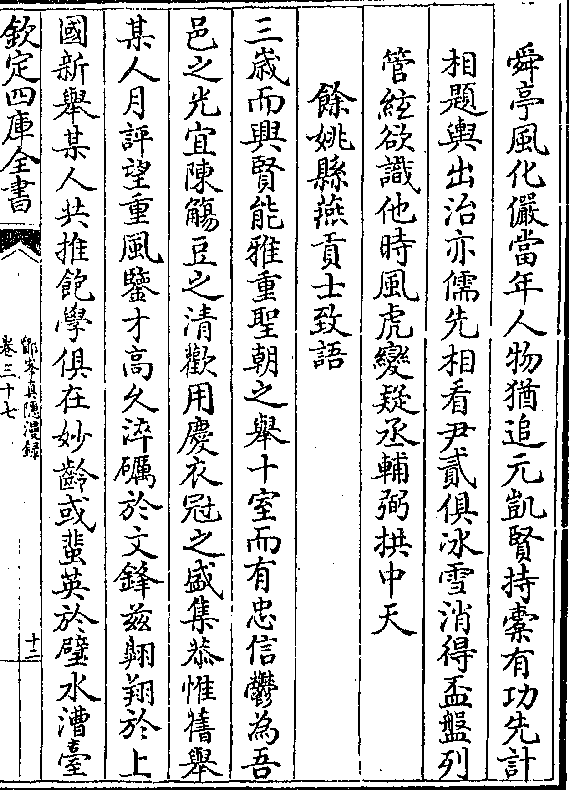 舜亭風化儼當年人物猶追元凱賢持橐有功先計
相題輿出治亦儒先相看尹貳俱冰雪消得盃盤列
管絃欲識他時風虎變疑丞輔弼拱中天
餘姚縣燕貢士致語
三歲而興賢能雅重聖朝之舉十室而有忠信鬱為吾
邑之光宜陳觴豆之清歡用慶衣冠之盛集恭惟舊舉
某人月評望重風鑒才高久淬礪於文鋒兹翺翔於上
國新舉某人共推飽學俱在妙齡或蜚英於璧水漕臺
欽定四庫全書
鄮峯真隱漫録
卷三十七
十二